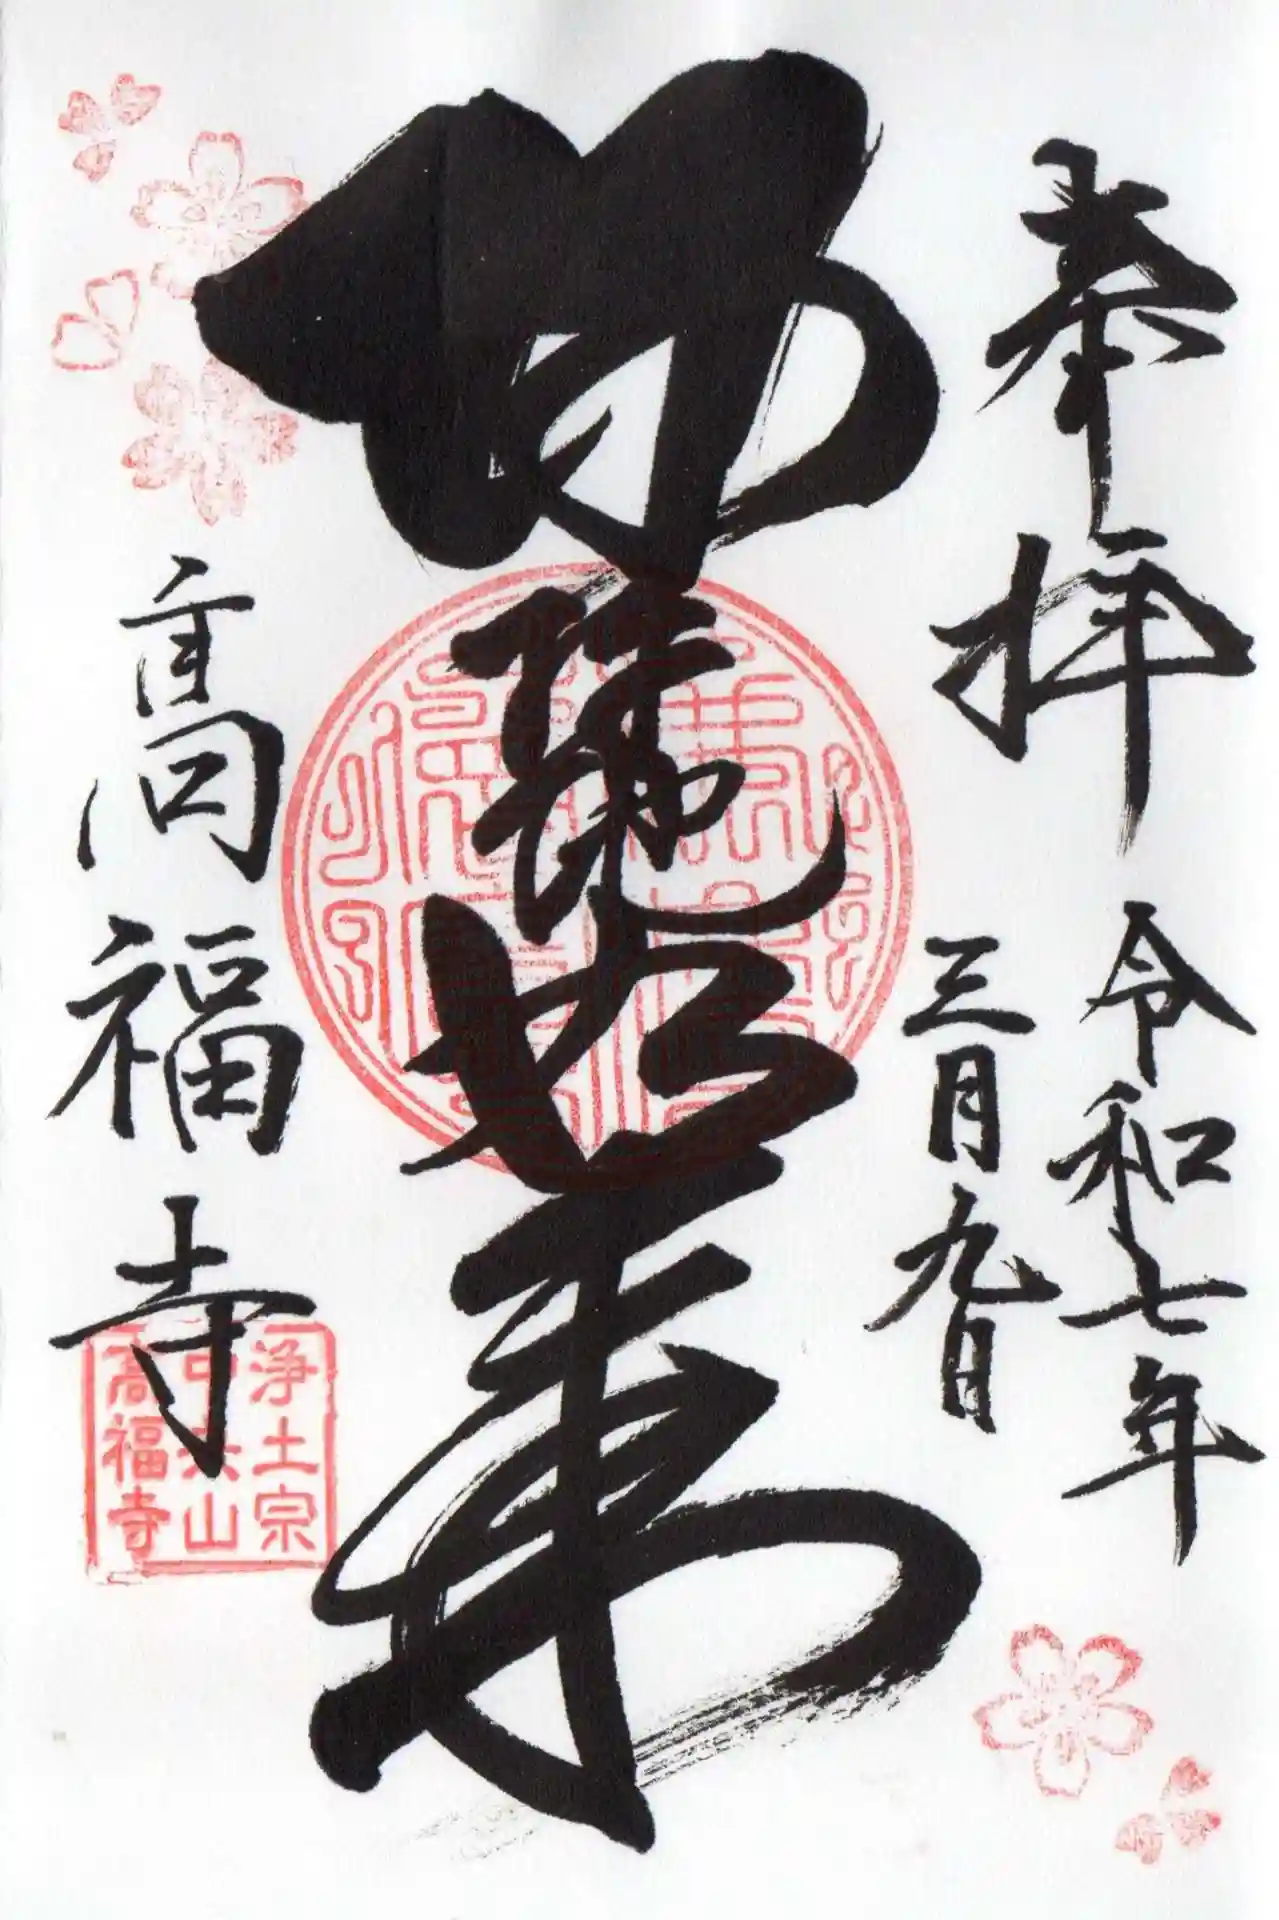 奉拝
令和七年
三月九日
阿弥陀如来
高福寺
浄土宗
中央山
高福寺